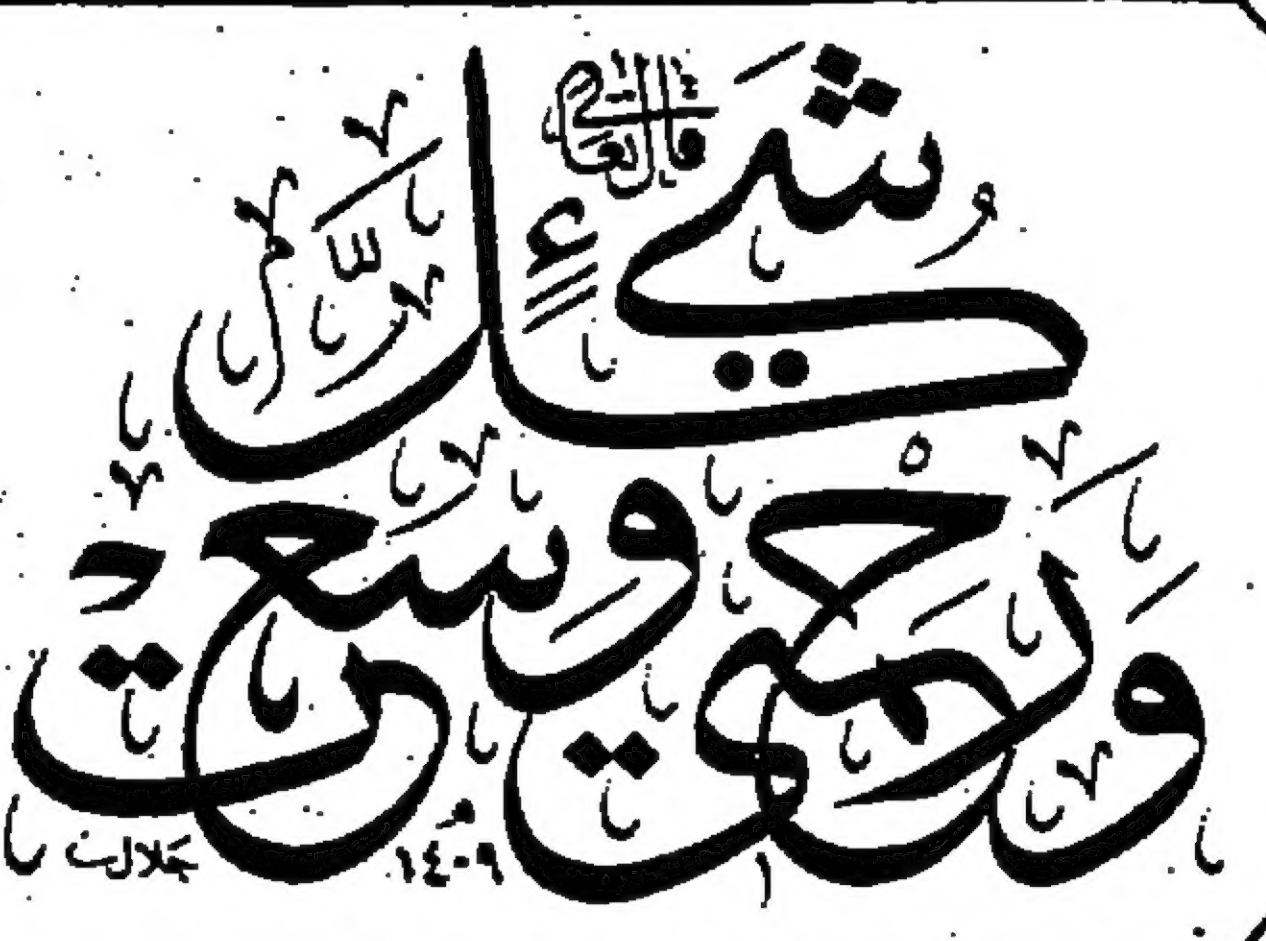 قال تعالى
وَرَحْمَتِي وَسِعَتْ
كُلَّ شَيْءٍ
١٤٠٩